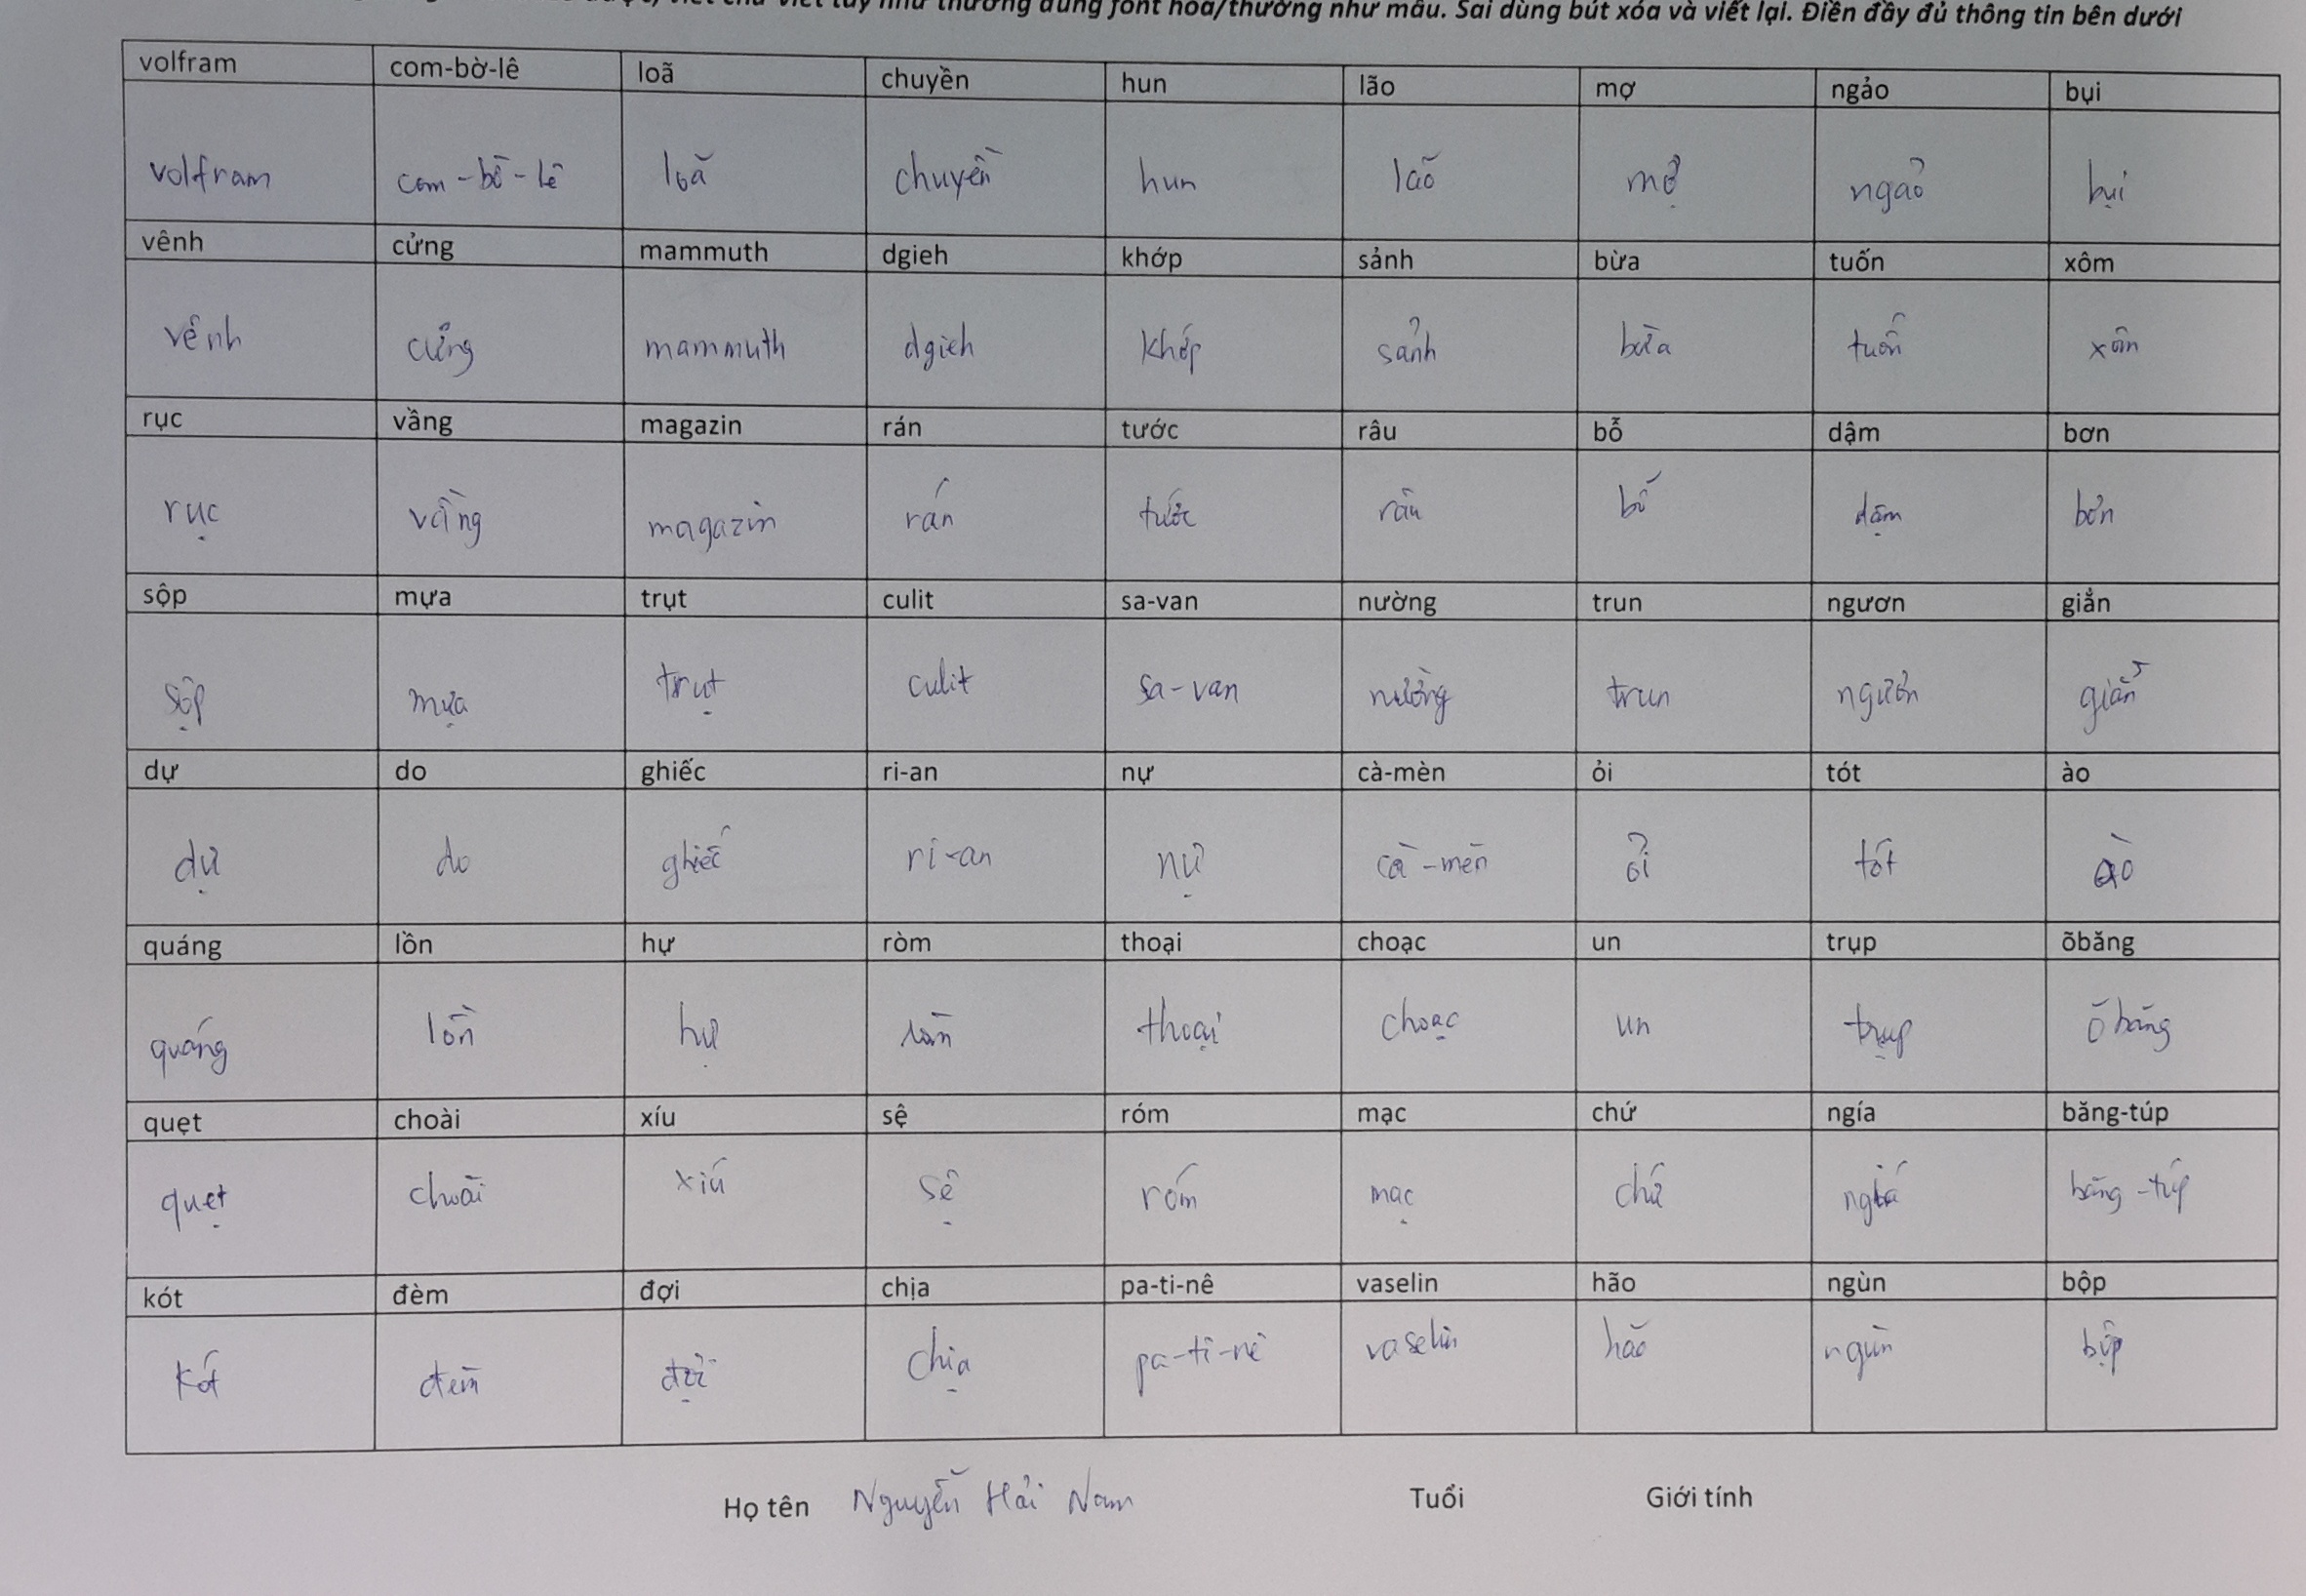 được, viết chữ viết tay như thường dùng font hoa/thường như mẫu. Sai dùng bút xóa và viết lại. Điền đầy đủ thông tin bên dưới
volfram com-bờ-lê loã chuyền hun lão mợ ngảo bụi
volfram com-bờ-lê loã chuyền hun lão mợ ngảo bụi
vênh cửng mammuth dgieh khớp sảnh bừa tuốn xôm
vênh cửng mammuth dgieh khớp sảnh bừa tuốn xôm
rục vầng magazin rán tước râu bỗ dậm bơn
rục vầng magazin rán tước râu bỗ dậm bơn
sộp mựa trụt culit sa-van nường trun ngươn giẳn
sộp mựa trụt culit sa-van nường trun ngươn giẳn
dự do ghiếc ri-an nự cà-mèn ỏi tót ào
dự do ghiếc ri-an nự cà-mèn ỏi tót ào
quáng lồn hự ròm thoại choạc un trụp õbăng
quáng lồn hự ròm thoại choạc un trụp õbăng
quẹt choài xíu sệ róm mạc chứ ngía băng-túp
quẹt choài xíu sệ róm mạc chứ ngía băng-túp
kót đèm đợi chịa pa-ti-nê vaselin hão ngùn bộp
kót đèm đợi chịa pa-ti-nê vaselin hão ngùn bộp
Họ tên Nguyễn Hải Nam Tuổi Giới tính